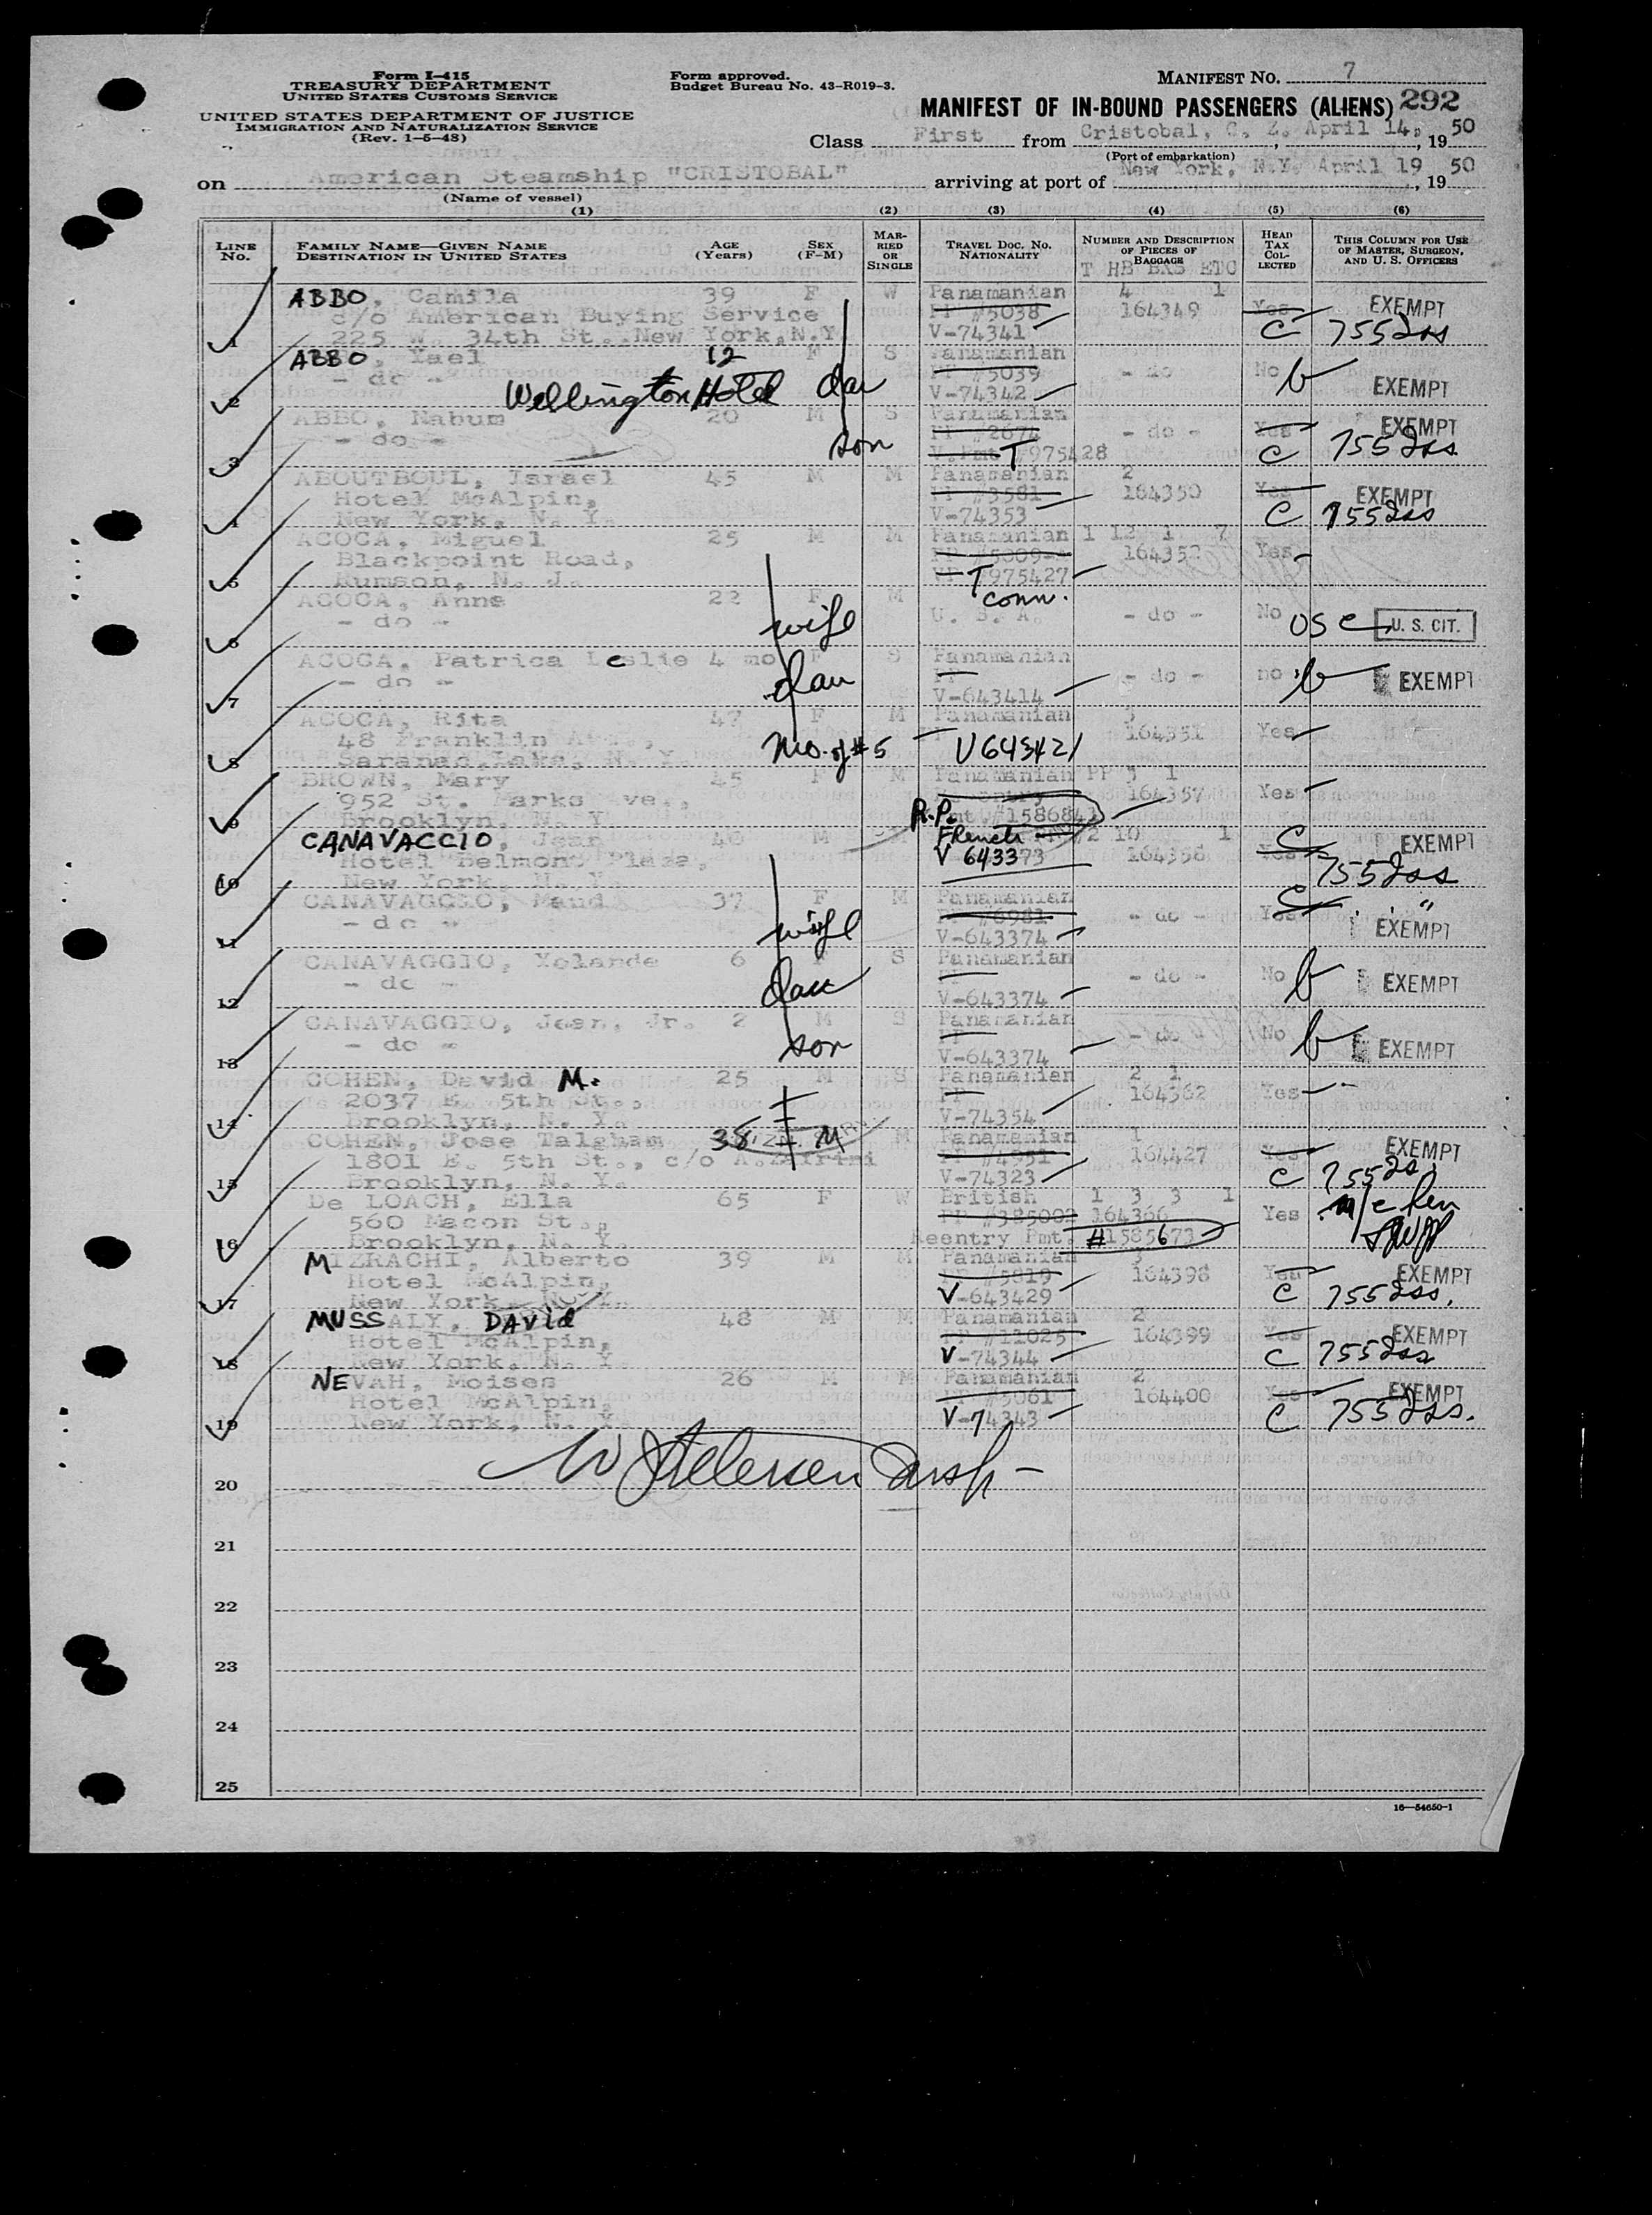 Form I-415
TREASURY DEPARTMENT
UNITED STATES CUSTOMS SERVICE
UNITED STATES DEPARTMENT OF JUSTICE
IMMIGRATION AND NATURALIZATION SERVICE
(Rev. 1-5-48)
Form approved.
Budget Bureau No. 43-R019-3.
MANIFEST NO. 7
MANIFEST OF IN-BOUND PASSENGERS (ALIENS) 292
Class First from Cristobal, C. Z. April 14, 1950
(Port of embarkation)
on American Steamship "CRISTOBAL" arriving at port of New York, N.Y. April 19, 1950
(Name of vessel)
(1) (2) (3) (4) (5) (6)
LINE NO. FAMILY NAME—GIVEN NAME DESTINATION IN UNITED STATES AGE (Years) SEX (F-M) MARRIED OR SINGLE TRAVEL DOC. NO. NATIONALITY NUMBER AND DESCRIPTION OF PIECES OF BAGGAGE HEAD TAX COLLECTED THIS COLUMN FOR USE OF MASTER, SURGEON, AND U. S. OFFICERS
T HB BXS ETC
ABBO, Camila 39 F W Panamanian 4 1
c/o American Buying Service PP #5038 164349 Yes EXEMPT
1 225 W. 34th St. New York, N.Y. V-74341 C 755
ABBO, Yael 12 F S Panamanian
- do - PP #5039 - do - No b EXEMPT
2 Wellington Hotel dau V-74342
ABBO, Nahum 20 M S Panamanian EXEMPT
- do - PP #2674 - do - Yes
3 son T 975428 C 755
ABOUTBOUL, Israel 45 M M Panamanian 2
Hotel McAlpin, PP #3581 164350 Yes EXEMPT
4 New York, N. Y. V-74353 C 755
ACOCA, Miguel 25 M M Panamanian 1 12 1 7
Blackpoint Road, 164352 Yes
5 Rumson, N. J. T 975427
ACOCA, Anne 22 F M conn.
6 - do - wife U. S. A. - do - No USC U. S. CIT.
ACOCA, Patrica Leslie 4 mo F S Panamanian
- do - dau PP - do - no b EXEMPT
7 V-643414
ACOCA, Rita 47 F M Panamanian 3
48 Franklin Ave., 164351 Yes
8 Saranac Lake, N. Y. Mo. of #5 V643421
BROWN, Mary 45 F M Panamanian PP 5 1
952 St. Marks Ave., Reentry 164357 Yes
9 Brooklyn, N. Y. R.P. Pmt #1586841
CANAVACCIO, Jean 40 M M French 2 10 1 C EXEMPT
Hotel Belmont Plaza, V 643373 164358 Yes
10 New York, N. Y. 755
CANAVAGGIO, Maud 37 F M Panamanian C "
- do - wife PP #6981 - do - Yes EXEMPT
11 V-643374
CANAVAGGIO, Yolande 6 F S Panamanian
- do - dau PP - do - No b EXEMPT
12 V-643374
CANAVAGGIO, Jean, Jr. 2 M S Panamanian
- do - son PP - do - No b EXEMPT
13 V-643374
COHEN, David M. 25 M S Panamanian 2 1
2037 E. 5th St., PP 164362 Yes
14 Brooklyn, N. Y. V-74354
COHEN, Jose Talgham 38 M M Panamanian 1 EXEMPT
1801 E. 5th St., c/o A. Zafrini PP #4951 164427 Yes
15 Brooklyn, N. Y. V-74323 C 755
De LOACH, Ella 65 F W British 1 3 3 1
560 Macon St., PP #385002 164366 Yes
16 Brooklyn, N. Y. Reentry Pmt. #1585673
MIZRACHI, Alberto 39 M M Panamanian 3
Hotel McAlpin, PP #5819 164398 Yes EXEMPT
17 New York, N. Y. V-643429 C 755
MUSSALY, DAVID 48 M M Panamanian 2
Hotel McAlpin, PP #11025 164399 Yes EXEMPT
18 New York, N. Y. V-74344 C 755
NEVAH, Moises 26 M M Panamanian 2
Hotel McAlpin, PP #5061 164400 Yes EXEMPT
19 New York, N. Y. V-74343 C 755
20
21
22
23
24
25
16—54650-1